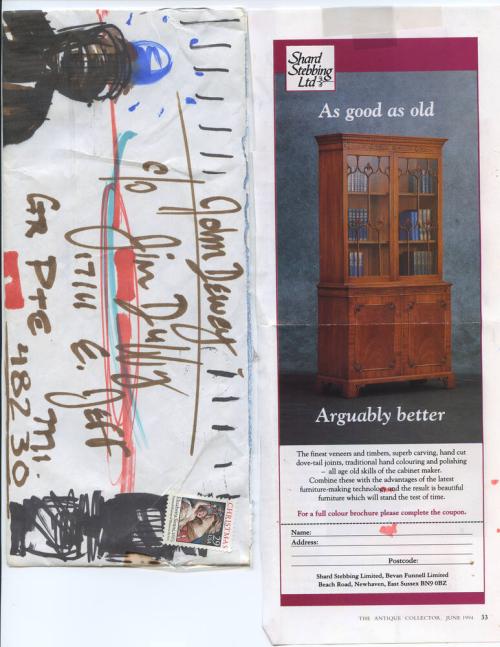 John Dewey
c/o
Jim
1714 E.
GR PTE
MI.
48230
CHRISTMAS
29
USA
Shard
Stebbing
Ltd
As good as old
Arguably better
The finest veneers and timbers, superb carving, hand cut
dove-tail joints, traditional hand colouring and polishing
– all age old skills of the cabinet maker.
Combine these with the advantages of the latest
furniture-making technology and the result is beautiful
furniture which will stand the test of time.
For a full colour brochure please complete the coupon.
Name:
Address:
Postcode:
Shard Stebbing Limited, Bevan Funnell Limited
Beach Road, Newhaven, East Sussex BN9 0BZ
THE ANTIQUE COLLECTOR, JUNE 1994 33